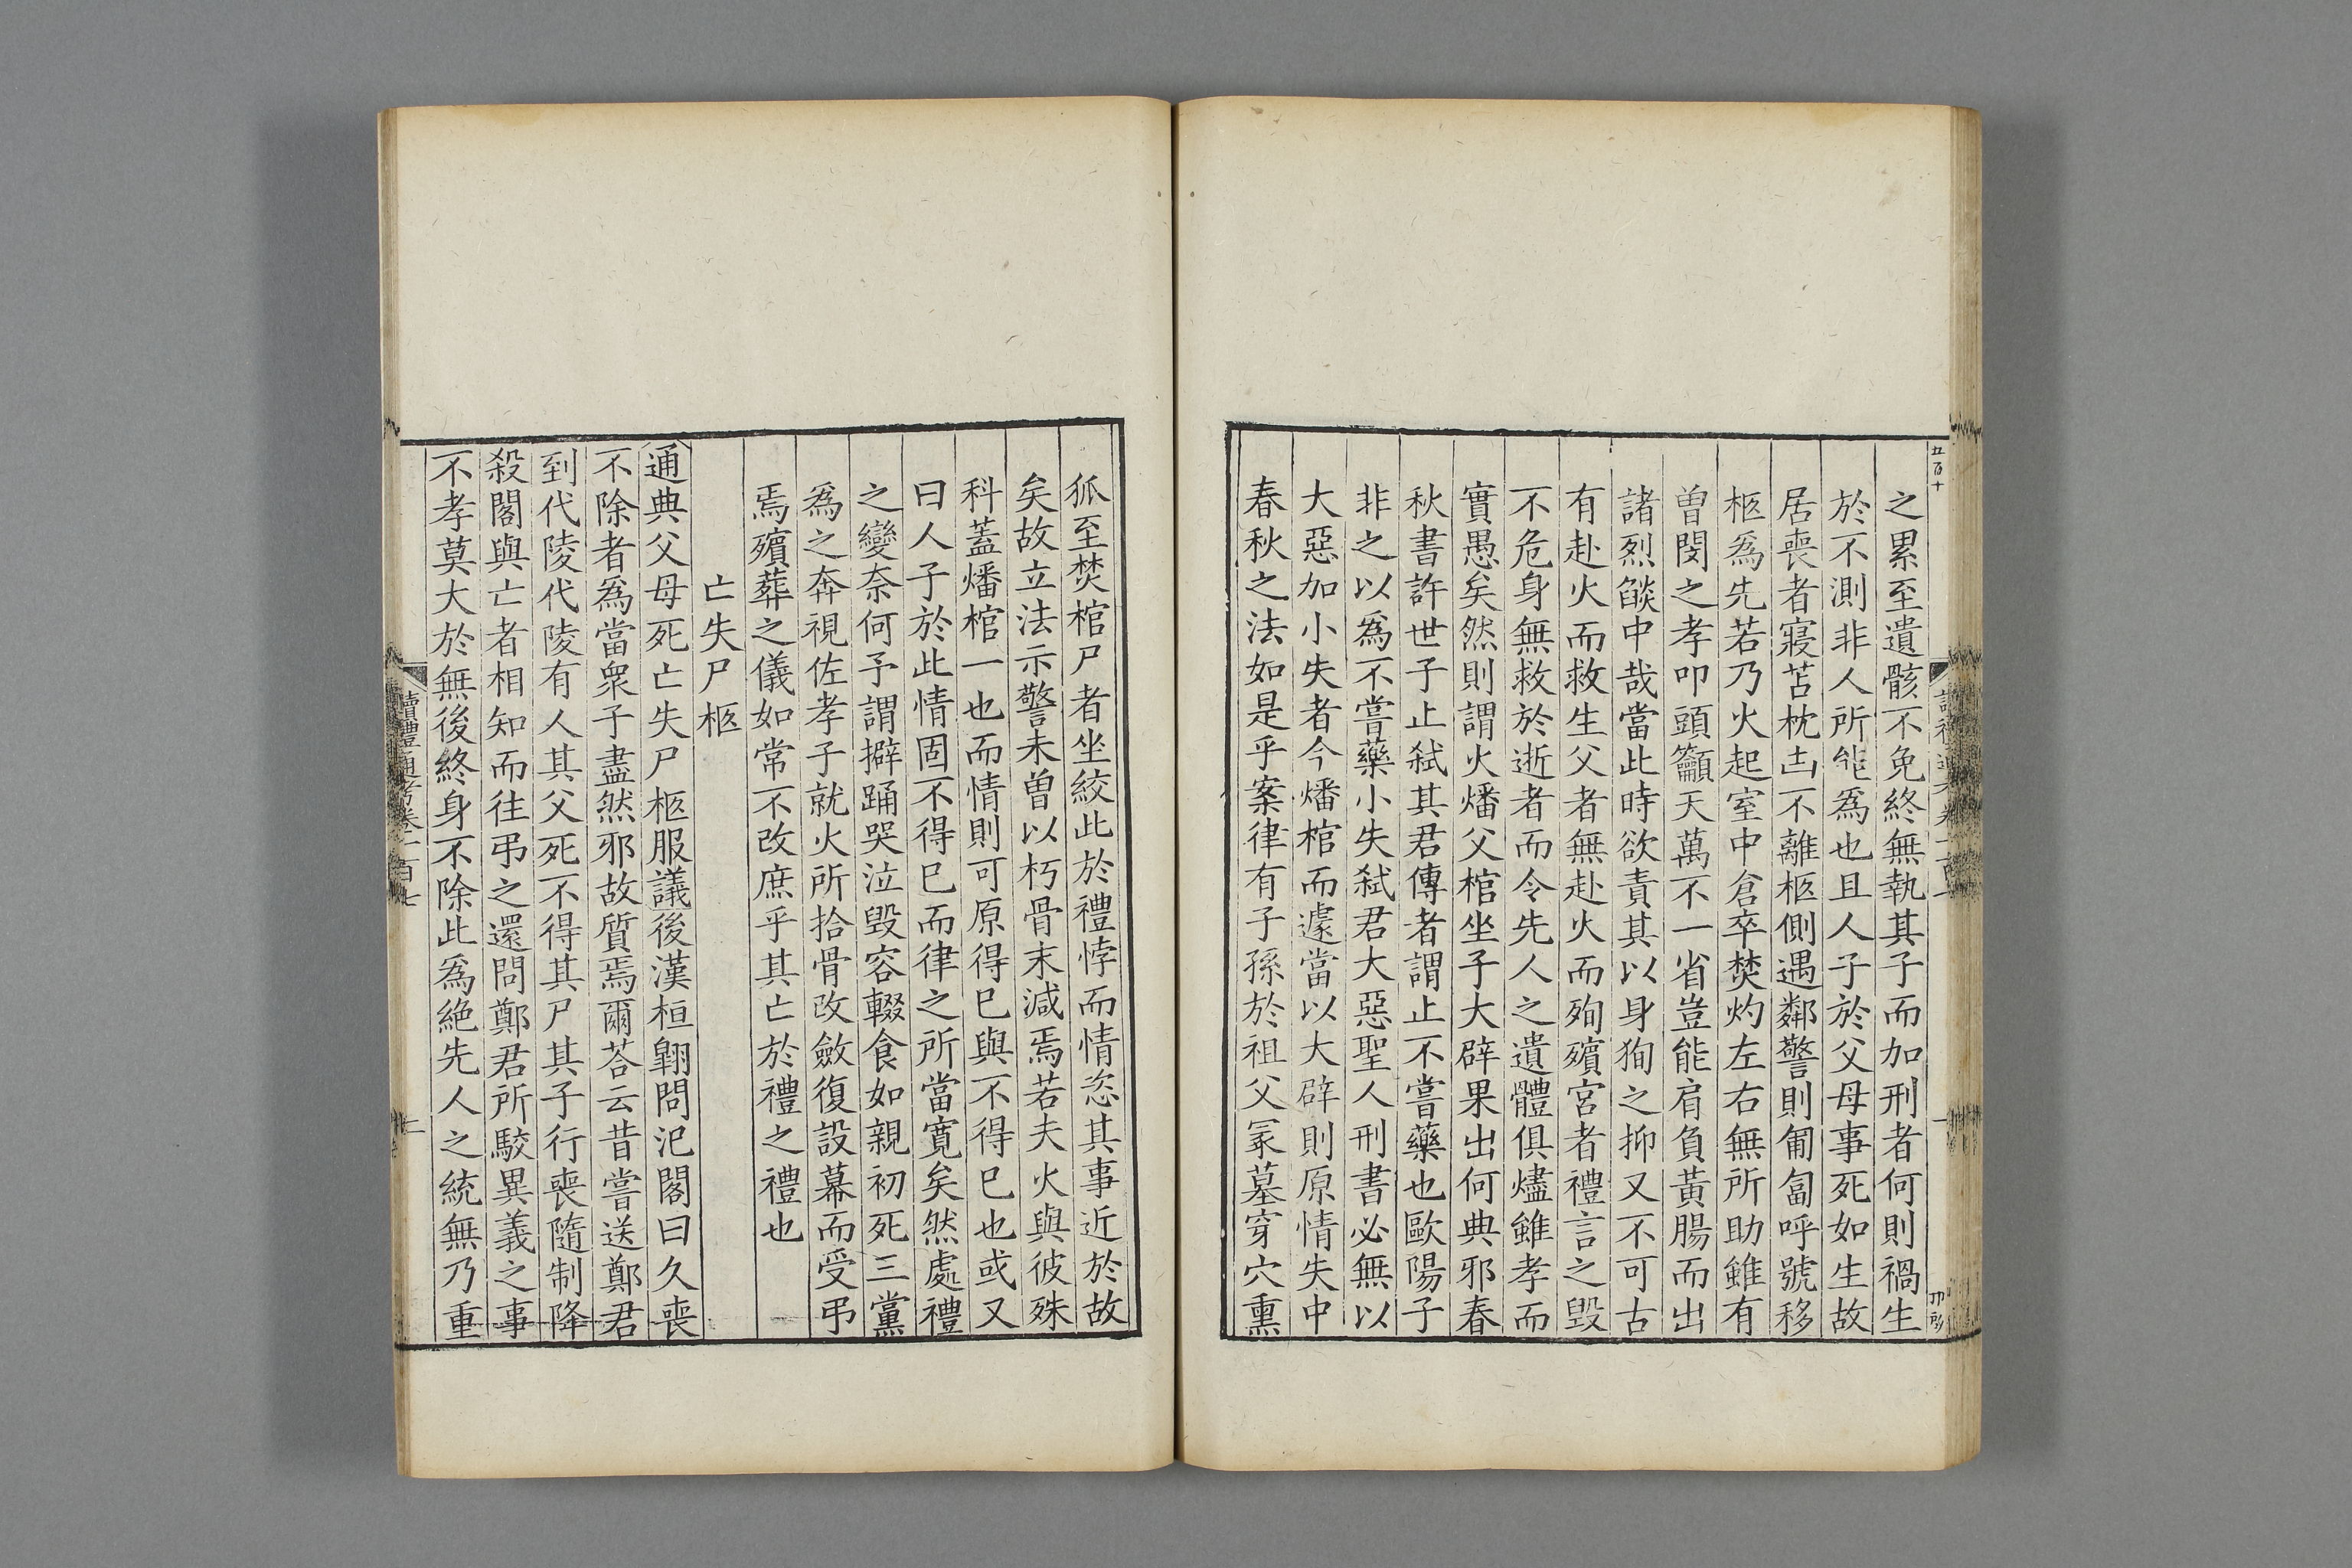 五百十
之累至遺骸不免終無執其子而加刑者何則禍生
於不測非人所能爲也且人子於父母事死如生故
居喪者寢苫枕凷不離柩側遇鄰警則匍匐呼號移
柩爲先若乃火起室中倉卒焚灼左右無所助雖有
曽閔之孝叩頭籲天萬不一省豈能肩負黃腸而出
諸烈燄中哉當此時欲責其以身狥之抑又不可古
有赴火而救生父者無赴火而殉殯宮者禮言之毀
不危身無救於逝者而令先人之遺體俱燼雖孝而
實愚矣然則謂火燔父棺坐子大辟果出何典邪春
秋書許世子止弑其君傳者謂止不嘗藥也歐陽子
非之以爲不嘗藥小失弑君大惡聖人刑書必無以
大惡加小失者今燔棺而遽當以大辟則原情失中
春秋之法如是乎案律有子孫於祖父冡墓穿穴熏
狐至焚棺尸者坐絞此於禮悖而情恣其事近於故
矣故立法示警未曽以朽骨末減焉若夫火與彼殊
科蓋燔棺一也而情則可原得已與不得已也或又
曰人子於此情固不得已而律之所當寬矣然處禮
之變奈何予謂擗踊哭泣毀容輟食如親初死三黨
爲之奔視佐孝子就火所拾骨改斂復設幕而受弔
焉殯葬之儀如常不改庶乎其亡於禮之禮也
亡失尸柩
通典父母死亡失尸柩服議後漢桓翺問汜閣曰久喪
不除者爲當衆子盡然邪故質焉爾荅云昔嘗送鄭君
到代陵代陵有人其父死不得其尸其子行喪隨制降
殺閣與亡者相知而往弔之還問鄭君所駮異義之事
不孝莫大於無後終身不除此爲絶先人之統無乃重
讀禮通考卷一百七
二